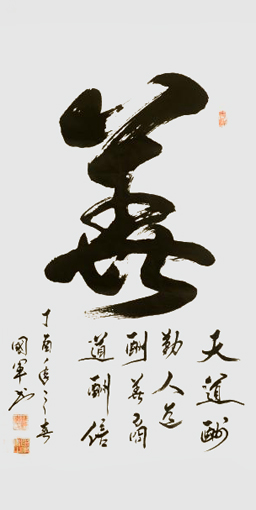 善
天道酬
勤人道
酬善商
道酬信
丁酉年之春
國軍书